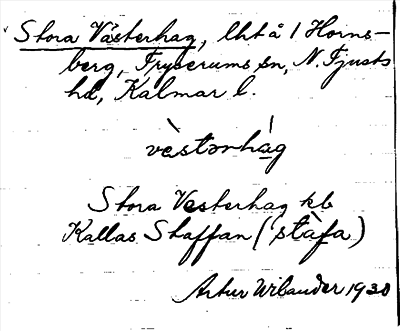 Stora Västerhag, lht å 1 Horns-
berg, Tryserums sn, N. Tjusts
hd, Kalmar l.
vèstərhág
Stora Vesterhag kb
Kallas Staffan (stàfa)
Artur Wilander 1930